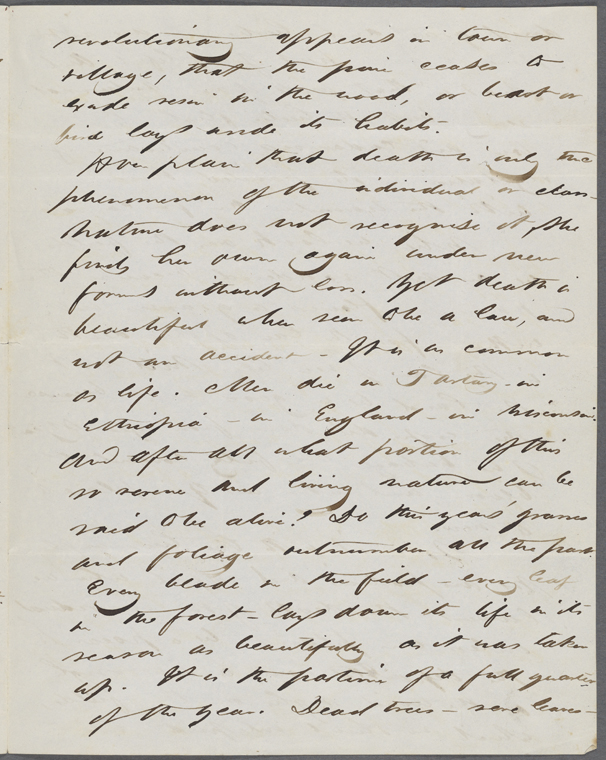 revolutionary appears in town or
village, that the pine ceases to
exude resin in the wood, or beast or
bird lays aside its habits.
How plain that death is only the
phenomenon of the individual or class.
Nature does not recognise it, she
finds her own again under new
forms without loss. Yet death is
beautiful when seen to be a law, and
not an accident - It is as common
as life. Men die in Tartary - in
Ethiopia - in England - in Wisconsin.
And after all what portion of this
so serene and living nature can be
said to be alive? Do this year's grasses
and foliage outnumber all the past.
Every blade in the field - every leaf
in the forest - lays down its life in its
season as beautifully as it was taken
up. It is the pastime of a full quarter
of the year. Dead trees - sere leaves -